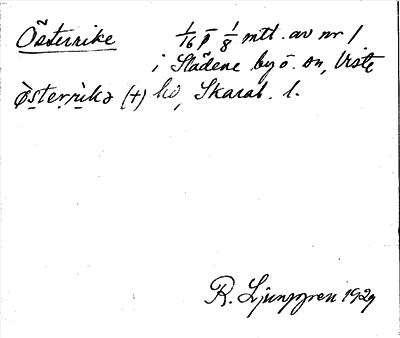 Österrike 1/16 på 1/8 mtl. av nr 1
i Slädene by o. sn, Viste
österrikə (+) hd, Skarab. l.
R. Ljunggren 1929